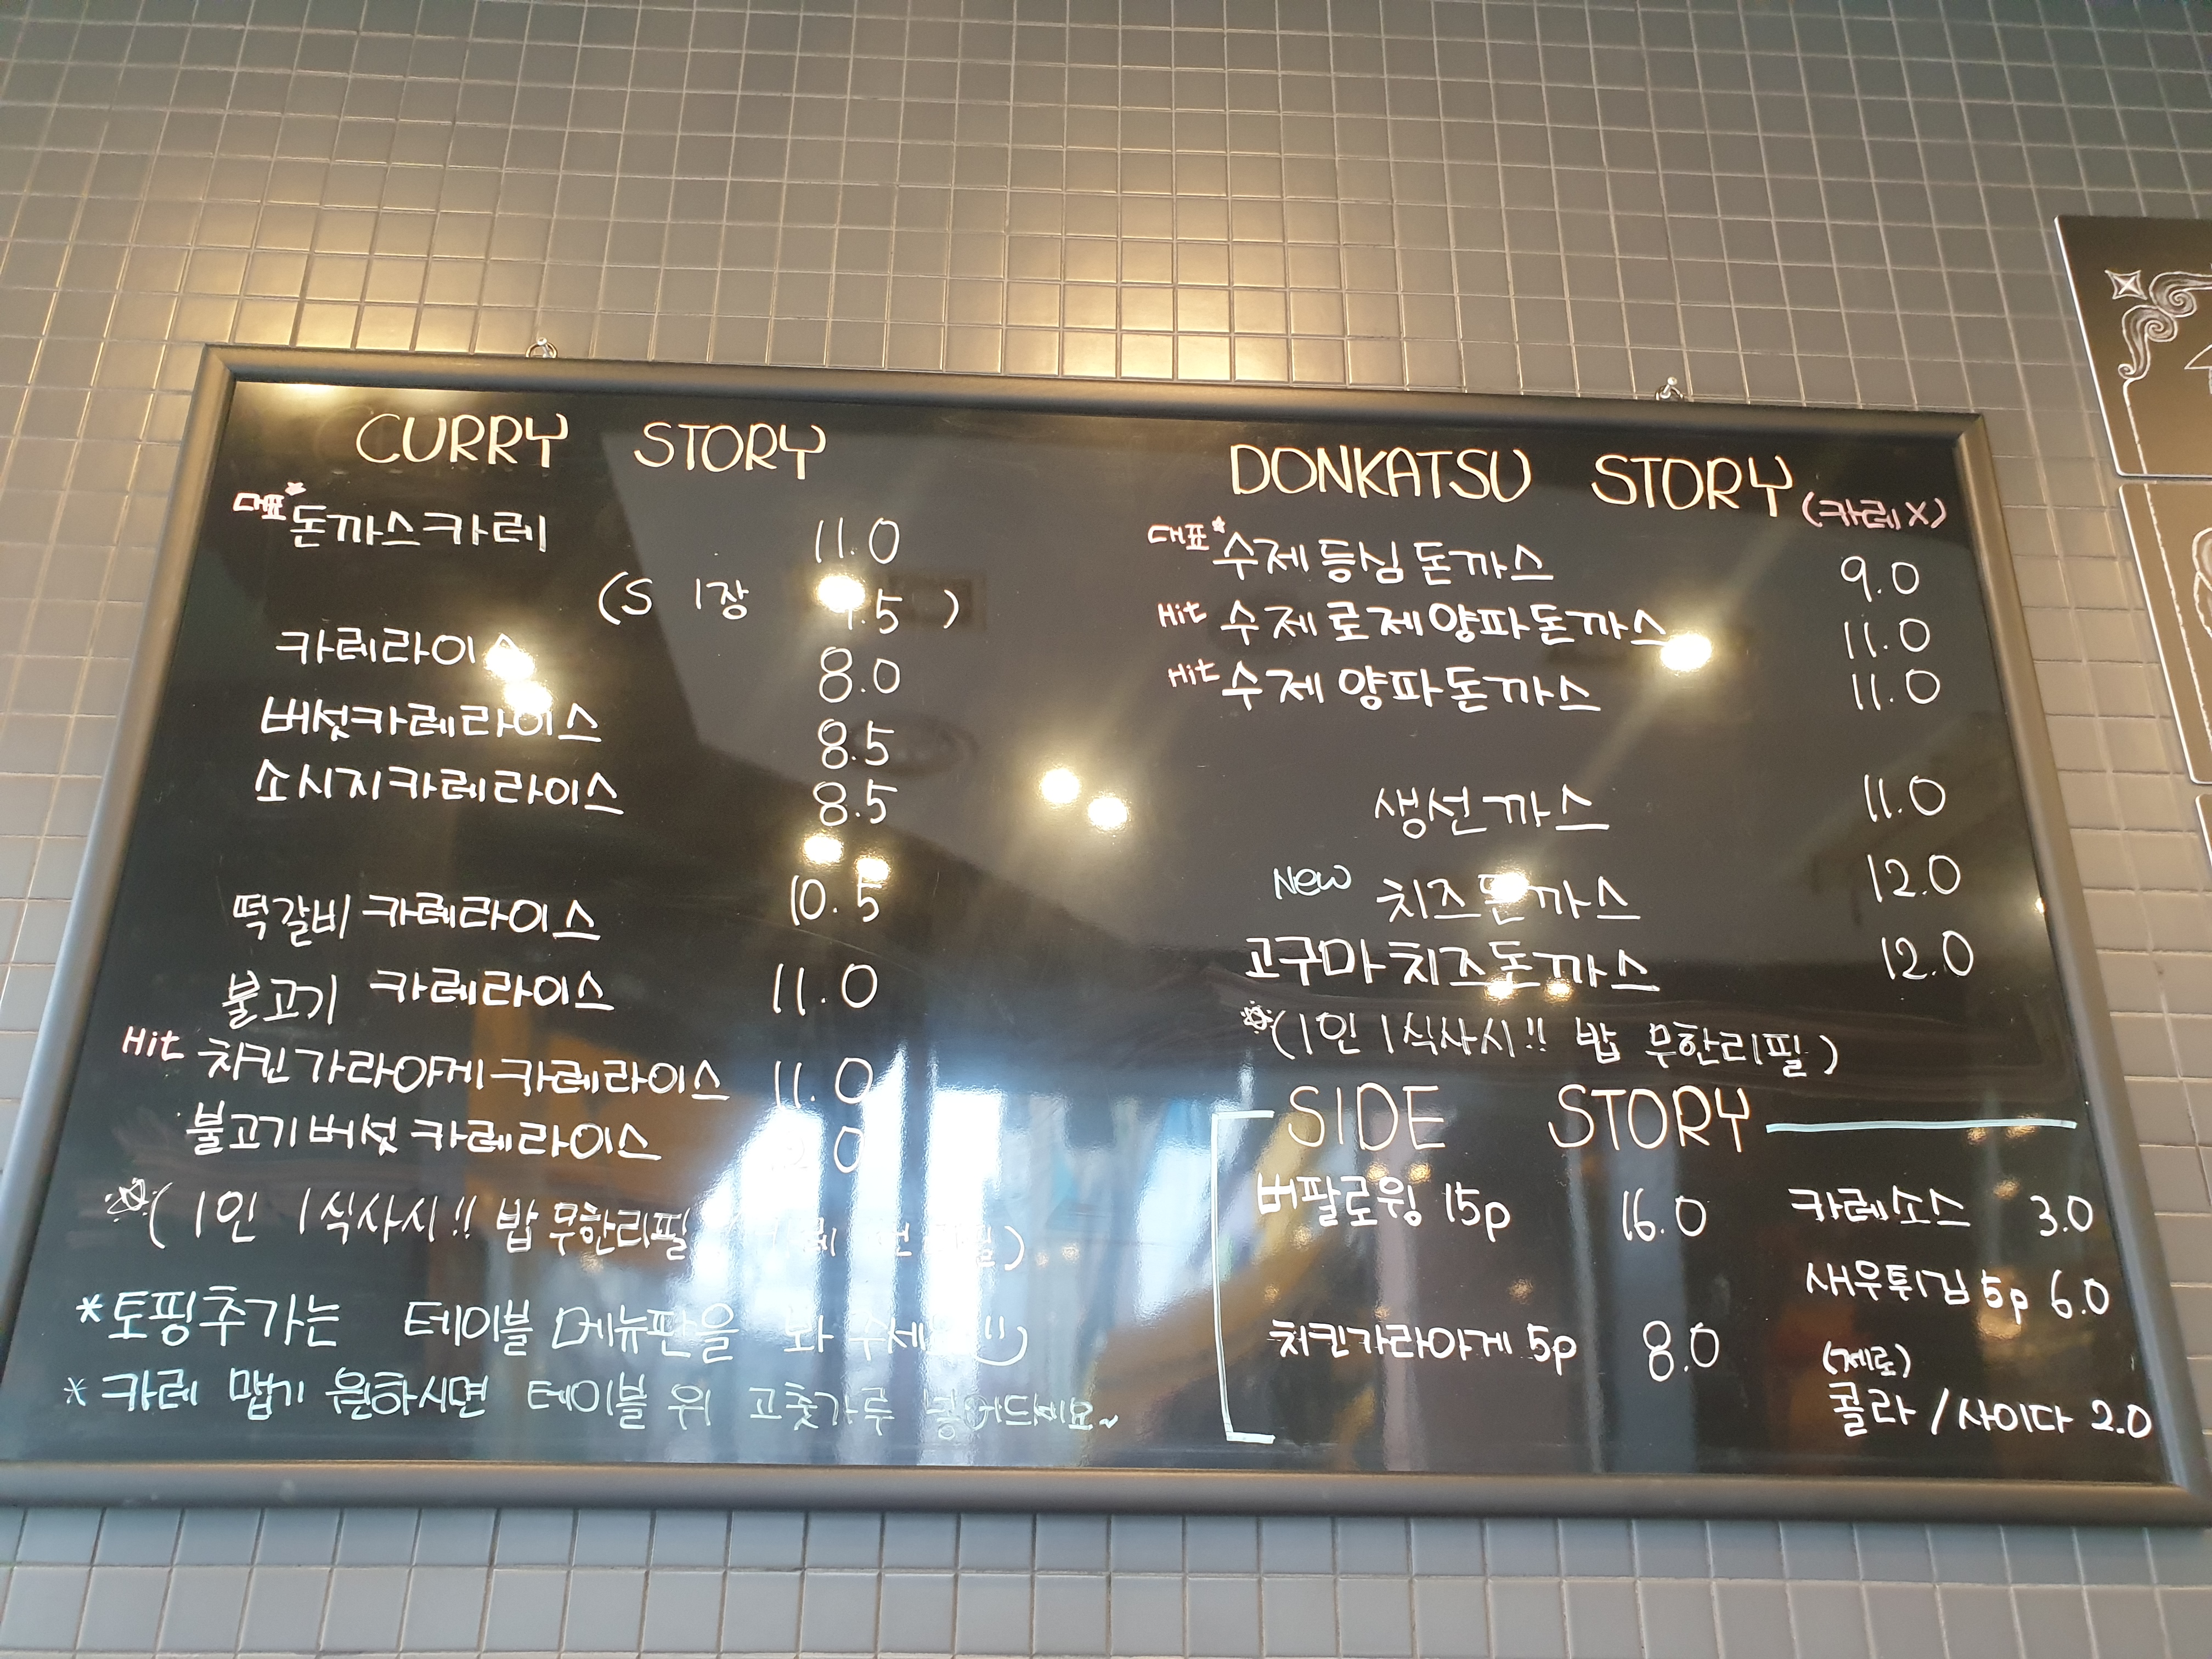 CURRY STORY
대표* 돈까스카레 11.0
(S 1장 .5 )
카레라이스 8.0
버섯카레라이스 8.5
소시지카레라이스 8.5
떡갈비 카레라이스 10.5
불고기 카레라이스 11.0
Hit 치킨가라아게카레라이스 11.0
불고기버섯 카레라이스
(1인 1식사시!! 밥 무한리필
*토핑추가는 테이블 메뉴판을 봐 주세
* 카레 맵기 원하시면 테이블 위 고춧가루 넣어드세요~
DONKATSU STORY (카레X)
대표* 수제등심돈까스 9.0
Hit 수제로제양파돈까스 11.0
Hit 수제양파돈까스 11.0
생선까스 11.0
New 치즈돈까스 12.0
고구마치즈돈까스 12.0
(1인 1식사시!! 밥 무한리필)
SIDE STORY
버팔로윙 15p 16.0
치킨가라아게 5p 8.0
카레소스 3.0
새우튀김 5p 6.0
(제로)
콜라/사이다 2.0